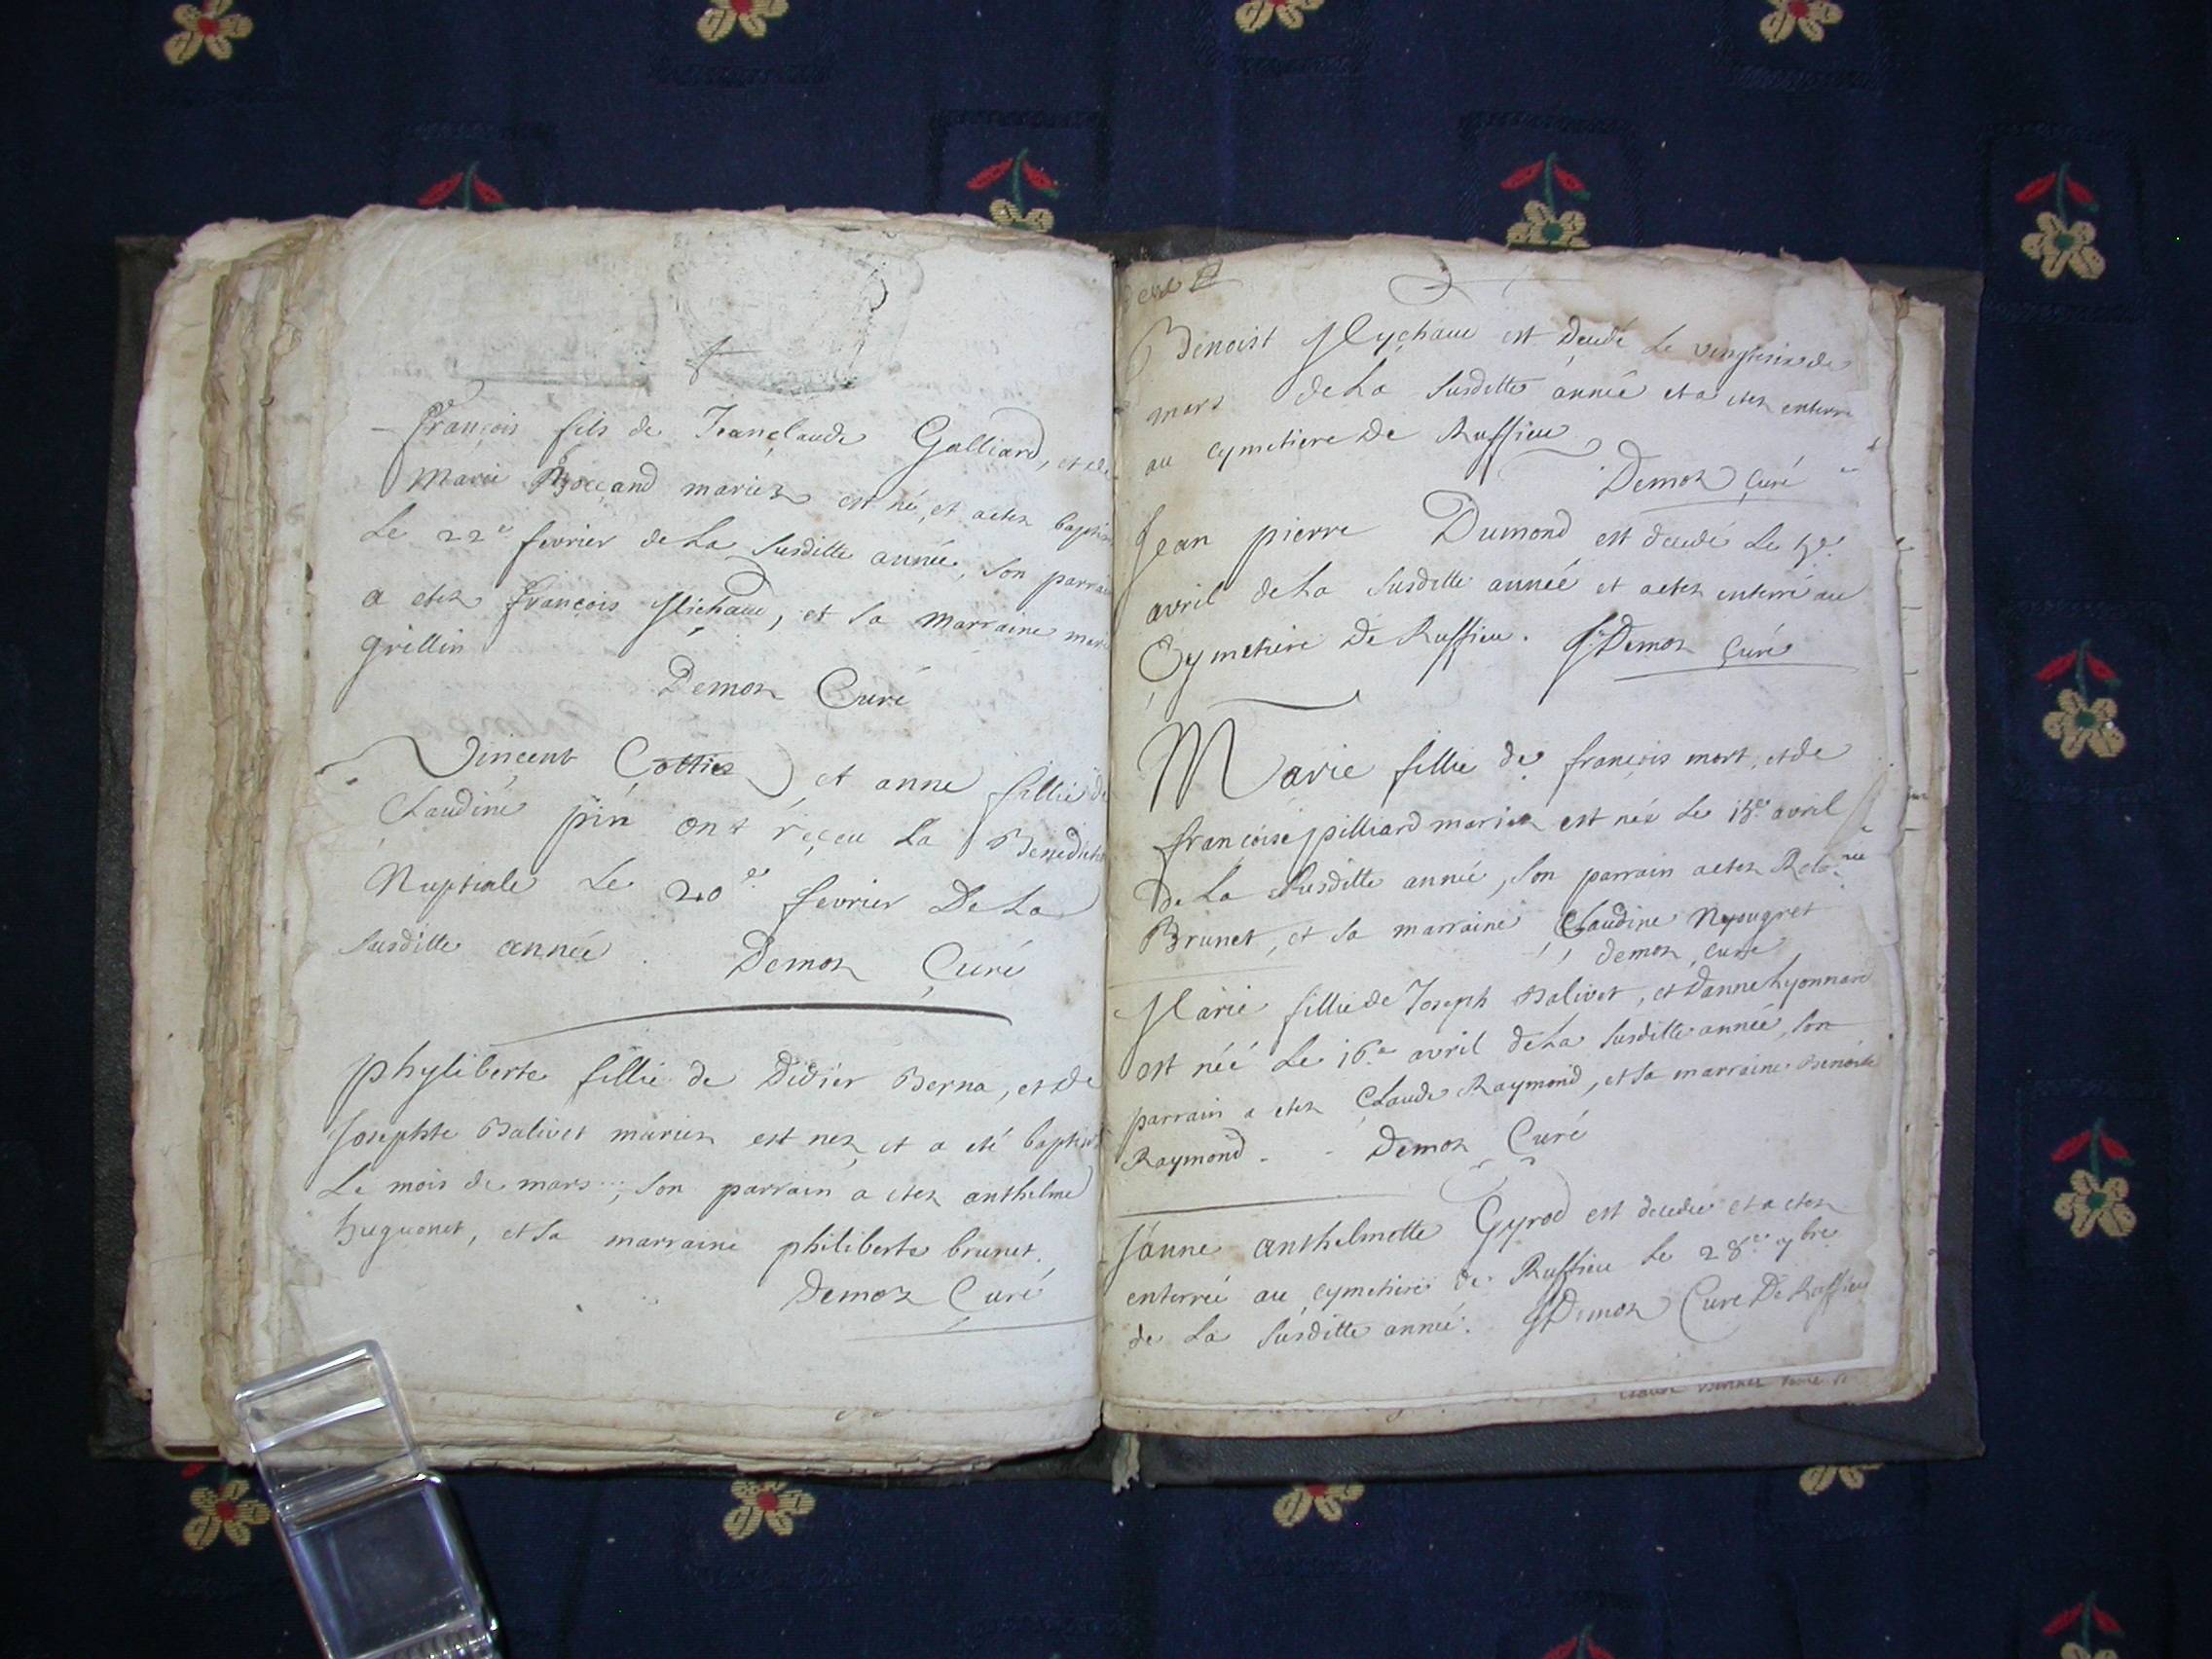 françois fils de Jeanclaude Galliard, et de
Marie Boccand mariez est né, et aetez baptisé
Le 22e. fevrier de La susditte année, son parrain
a etez françois Michaud, et sa marraine marie
grillin
Demoz Curé
Vinçent Cottiez et anne fillie de
Claudine pin ont reçeu La Benedictio
Nuptiale Le 20e. fevrier De La
susditte année. Demoz Curé
phyliberte fillie de Didier Berna, et de
Josephte Balivet mariez est nez et a eté baptisé
Le mois de mars ; son parrain a etez anthelme
huguenet, et sa marraine philiberte brunet.
Demoz Curé
Benoist Mychaue est decedé Le vingtsixe de
mars de La susditte année et a etez enterré
au cymetiere De Ruffieu
Demoz Curé
Jean pierre Dumond est decedé Le 5e.
avril de La susditte année et aetez enterré au
Cymetiere De Ruffieu. Demoz Curé
Marie fillie de françois mort, et de
françoise pilliard mariez est née Le 15e. avril
De La susditte année, son parrain aetez
Brunet, et sa marraine Claudine
demoz curé
Marie fillie de Joseph Balivet, et Danne Lyonnard
est née Le 16e avril de La susditte année, son
parrain a etez Claude Raymond, et sa marraine Benoite
Raymond. Demoz Curé
Janne anthelmette Gyrod est decedée et a etez
enterrée au cymetiere de Ruffieu Le 28e. bre
de La susditte année. Demoz Curé De Ruffieu